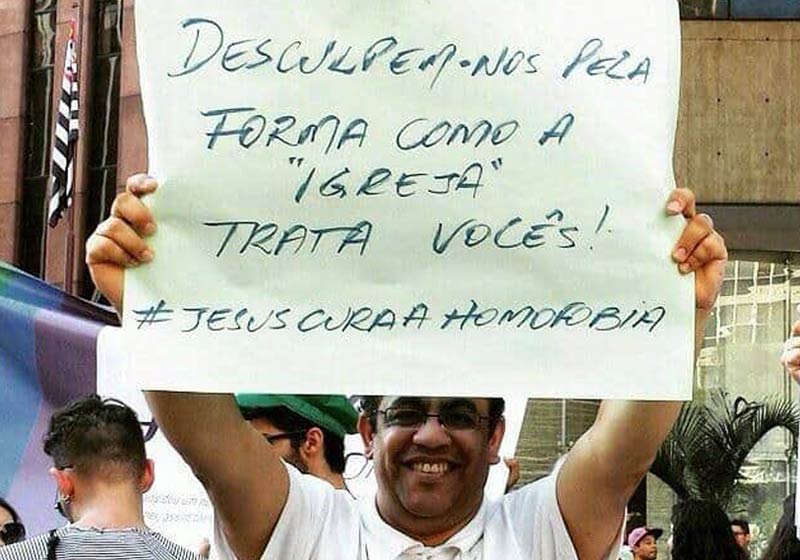 DESCULPEM-NOS PELA
FORMA COMO A
"IGREJA"
TRATA VOCÊS!
#JESUSCURAAHOMOFOBIA